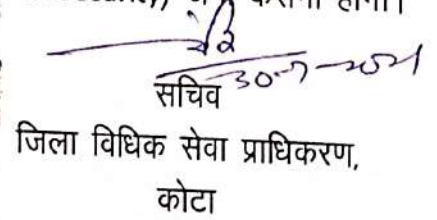 करानी होगी।
30-7-2021
सचिव
जिला विधिक सेवा प्राधिकरण,
कोटा